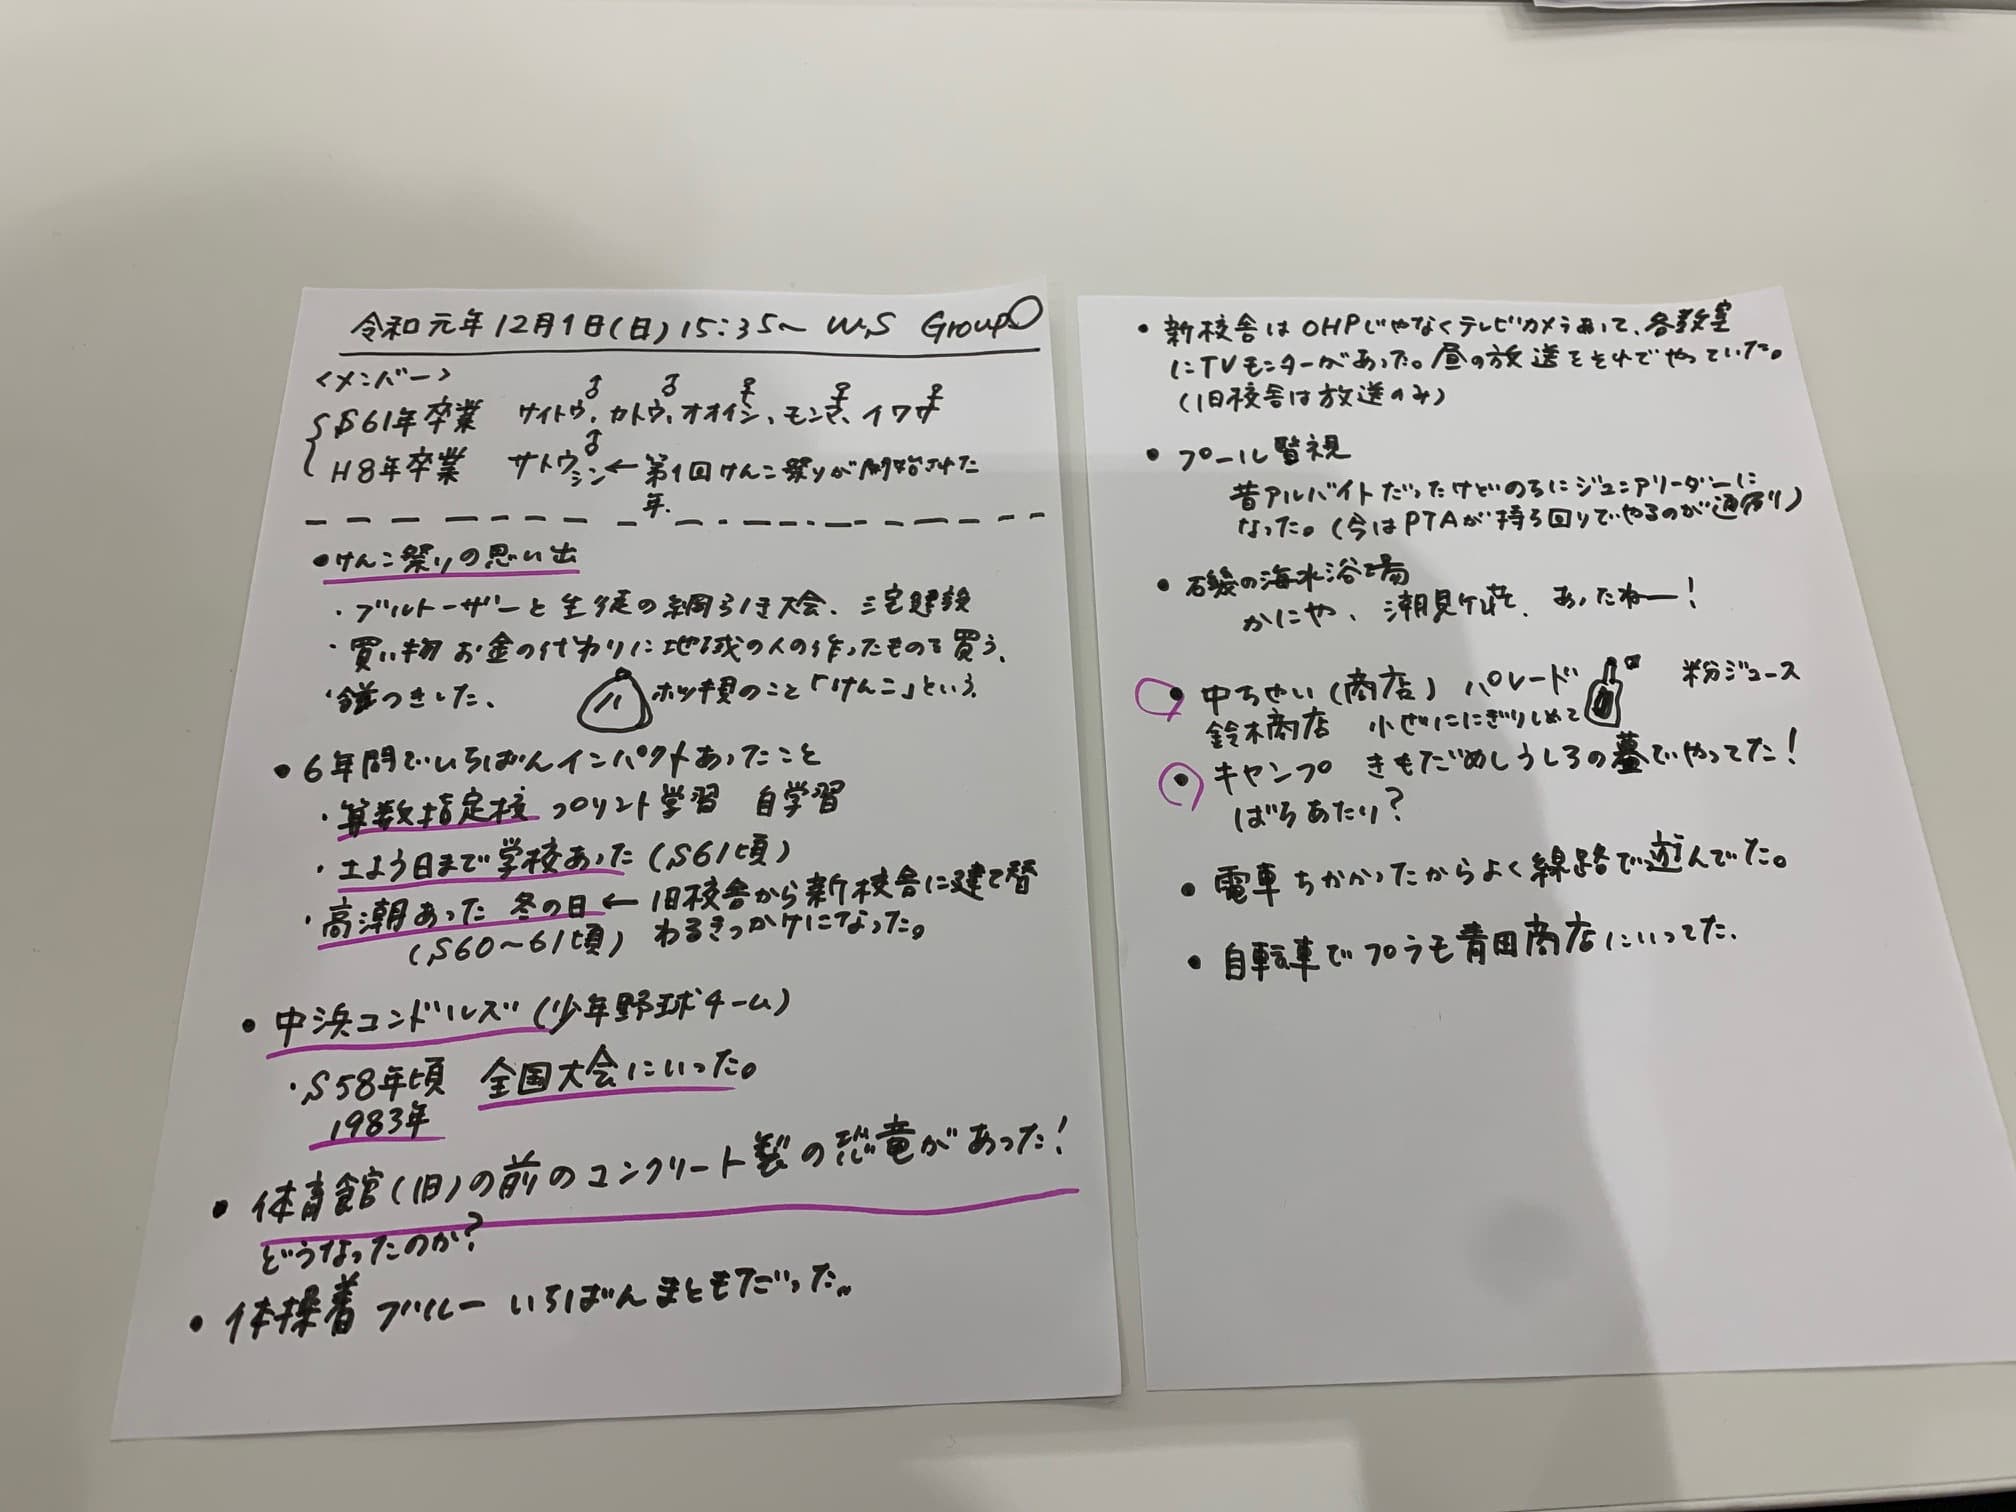 令和元年12月1日(日)15:35〜 W.S Group
<メンバー>
S61年卒業 サイトウ、カトウ、オオイシ、モンマ、イワサ
H8年卒業 サトウシン←第1回けんこ祭りが開始された
年.
•けんこ祭りの思い出
・ブルトーザーと生徒の綱引き大会、三宅建設
・買い物 お金の代わりに地域の人の作ったものを買う、
つきした、 ホッキ貝のこと「けんこ」という。
•6年間でいちばんインパクトあったこと
・算数指定校 プリント学習 自学習
・土よう日まで学校あった(S61頃)
・高潮あった 冬の日←旧校舎から新校舎に建て替
(S60〜61頃) わるきっかけになった。
•中浜コンドルズ(少年野球チーム)
・S58年頃 全国大会にいった。
1983年
•体育館(旧)の前のコンクリート製の恐竜があった!
どうなったのか?
•体操着 ブルー いちばんまともだった。
•新校舎はOHPじゃなくテレビカメラあって、各教室
にTVモニターがあった。昼の放送をそれでやっていた。
(旧校舎は放送のみ)
•プール監視
昔アルバイトだったけどのちにジュニアリーダーに
なった。(今はPTAが持ち回りでやるのが通例)
•磯の海水浴場
かにや、潮見荘、あったねー!
•中ちせい(商店) パレード 粉ジュース
鈴木商店 小ぜににぎりしめて
•キャンプ きもだめしうしろの墓でやってた!
ばちあたり?
•電車ちかかったからよく線路で遊んでた。
•自転車でプラモ青田商店にいってた.